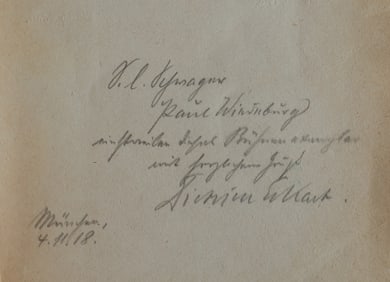 S. l. Schwager
Paul Wiesnburg
einstweilen dieses Bühnenexemplar
mit herzlichem Gruß
Dietrich Eckart.
München,
4.11.18.